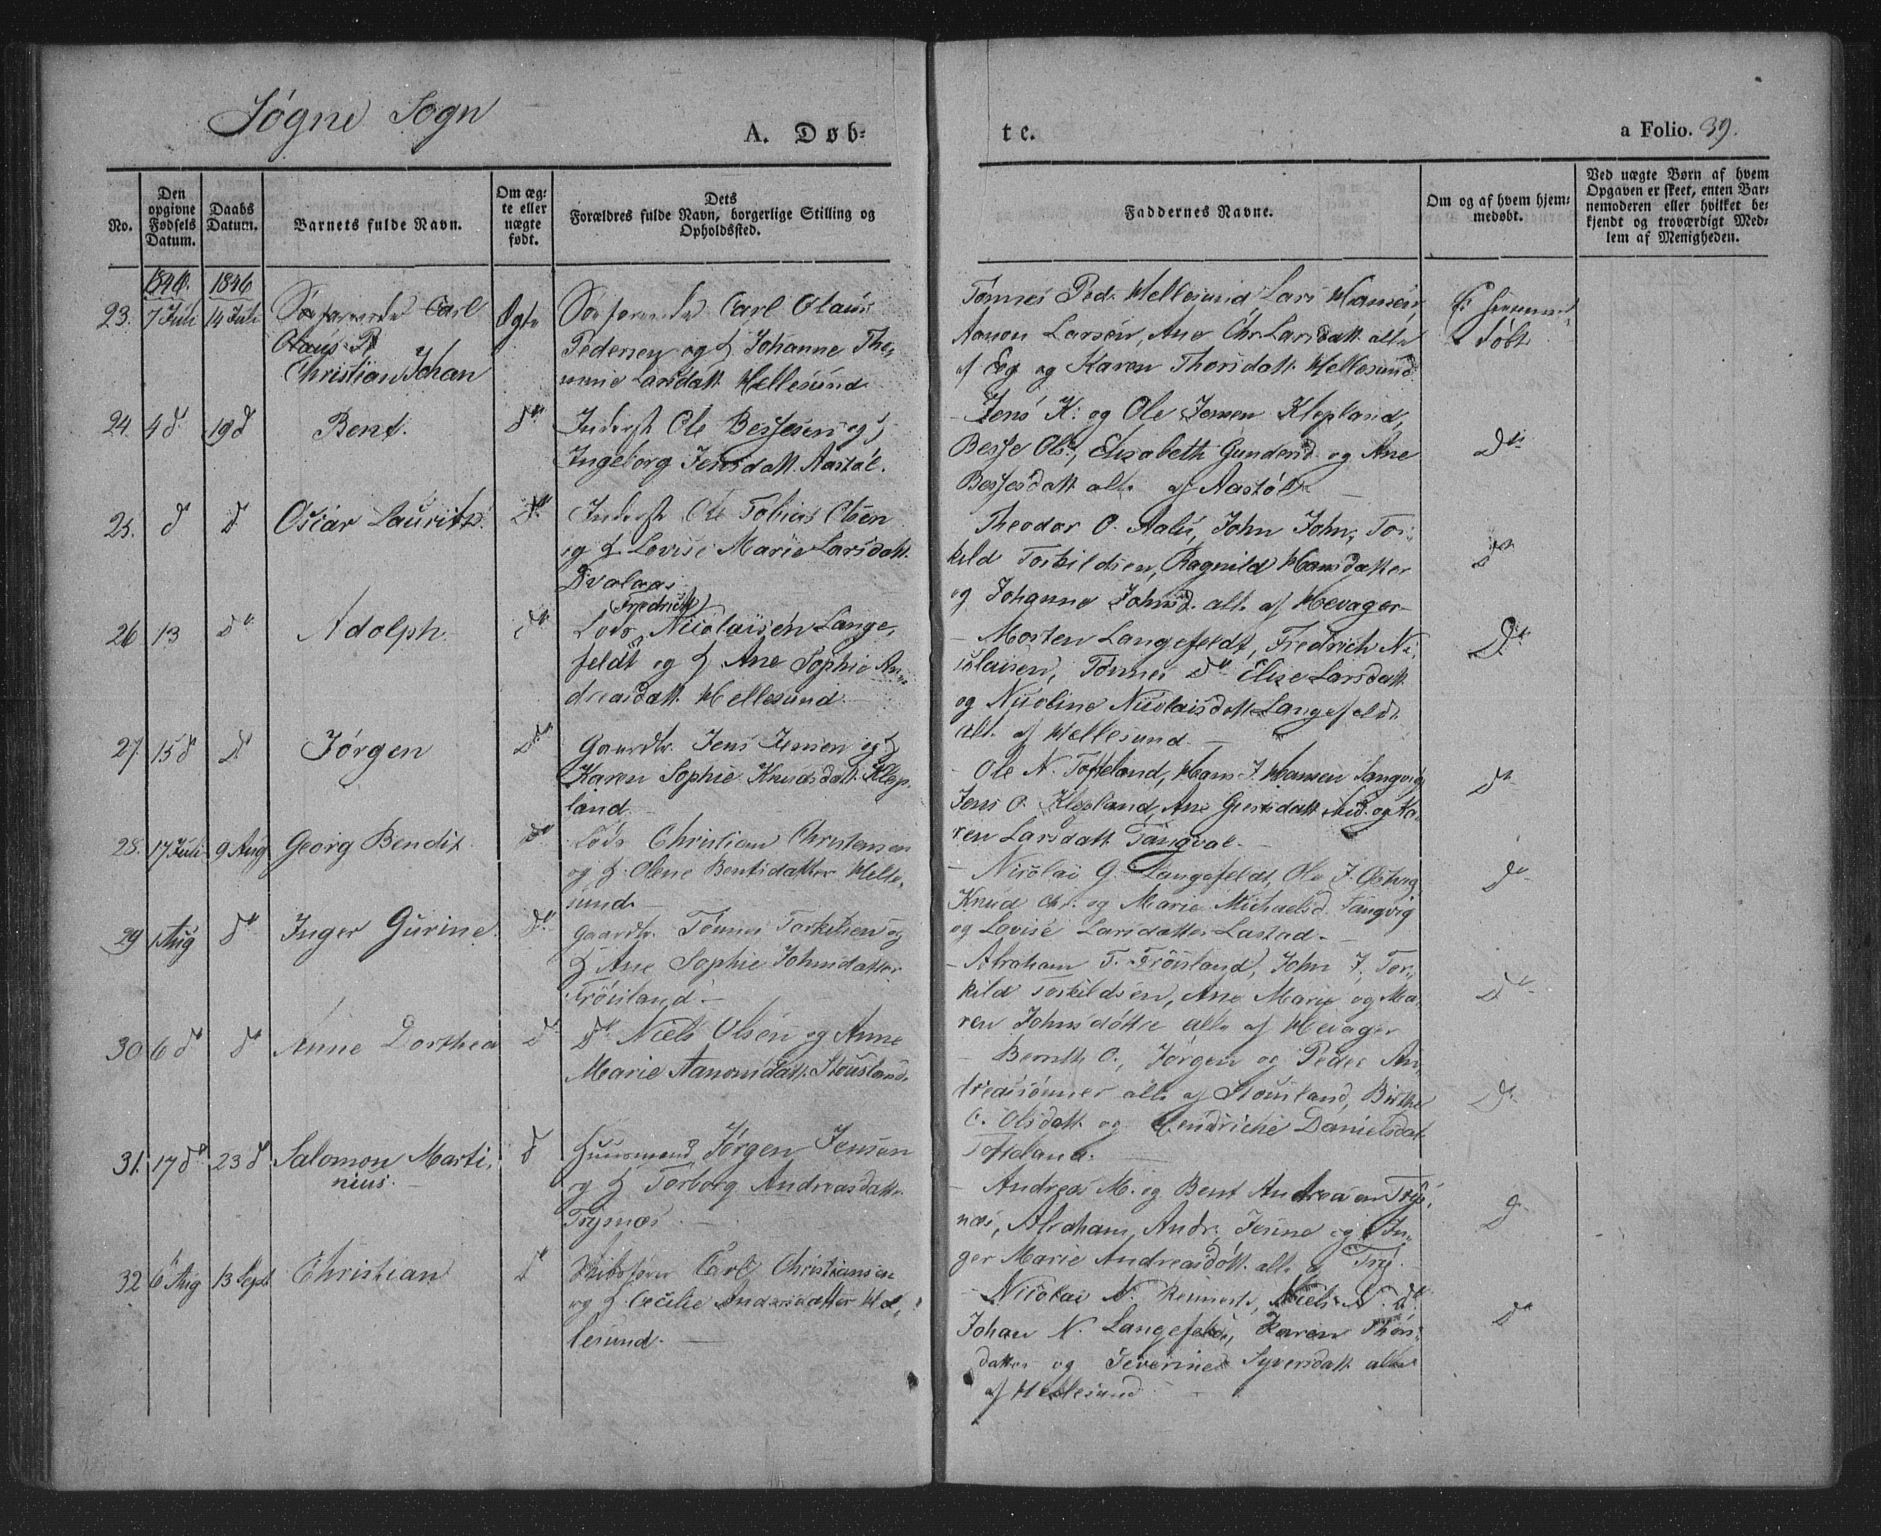 Søgne Sogn
A. Døb-
te.
a Folio. 39.
No.
Den opgivne Fødsels Datum.
Daabs Datum.
Barnets fulde Navn.
Om æg-
te eller
nægte
født.
Dets
Forældres fulde Navn, borgerlige Stilling og
Opholdssted.
Faddernes Navne.
Om og af hvem hjem-
medøbt.
Ved nægte Børn af hvem
Opgaven er skeet, enten Bar-
nemoderen eller hvilket be-
kjendt og troværdigt Med-
lem af Menigheden.
1846. 1846
23. 7 Juli 14 Juli
Søefarende Carl
Olaus P
Christian Johan
Ægte
Søefarende Carl Olaus
Pedersen og H Johanne Tho-
mine Larsdatt. Hellesund
Tønnes Ped. Hellesund Lars Hansen,
Aanon Larsen, Ane Chr. Larsdatt. alle
af Eeg og Karen Thorsdatt. Hellesund
døbt
24. 4 d 19 d
Bent.
do
Inderst Ole Bessesen og H
Ingeborg Jensdatt. Aastøl.
Jens K: og Ole Jensen Klepland,
Besse Ols:, Elisabeth Gundersd. og Ane
Bessesdatt alle af Aastøl
do
25. d d
Oscar Lauritz
do
Inderst Ole Tobias Olsen
og H Lovise Marie Larsdatt.
Dvalaas
Theodor O. Aalis, John John, Tor-
kild Torkildsen, Ragnild Hansdatter
og Johanne Johnsd. alle af Hevager
do
26 13 do
Adolph.
do
(Fredrich)
Lods Nicolaisen Lange-
feldt og H Ane Sophie An-
dreasdatt. Hellesund
Morten Langefeldt, Fredrich Ni-
colaisen, Tønnes do Elise Larsdatt.
og Nicoline Nicolaisdatt. Langefeldt
alle af Hellesund
do
27. 15 d d
Jørgen
do
Gaardbr. Jens Jensen og H
Karen Sophie Knudsdatt. Klep-
land
Ole N. Tofteland, Hans J. Hansen Tangvig
Jens O. Klepland, Ane Jensdatt. og Ka-
ren Larsdatt Tangval
do
28. 17 Juli 9 Aug
Georg Bendix
do
Lods Christian Christensen
og H. Olene Bentsdatter Helle-
sund
Nicolai G. Langefeldt, Ole J.
Knud Chr. og Marie Michaelsd. Tangvig
og Lovise Larsdatter Lastad
do
29 1 Aug do
Inger Gurine
do
Gaardbr. Tønnes Torkelsen og
H Ane Sophie Johnsdatter
Trøisland
Abraham T. Trøisland, John J. Tor-
kild Torkildsen, Ane Marie og Ma-
ren Johnsdøttre alle af Hevager
do
30 6 d do
Anne Dorthea
d
do Niels Olsen og Anne
Marie Aanonsdatt. Stousland
Bernth O., Jørgen og Peder An-
dreassønner alle af Stousland, Birthe
O. Olsdatt. og Hendriche Danielsdatt.
Tofteland.
do
31. 17 do 23 d
Salomon Marti-
nius.
d
Huusmand Jørgen Jensen
og H Torborg Andreasdatt.
Trysnæs
Andreas M. og Bent Andreasen Trys-
næs, Abraham Andr., Jenine og In-
ger Marie Andreasdøtt. alle af Try.
d
32 6 Aug 13 Sept
Christian
d
Skibsfører Carl Christiansen
og H Cecilie Andersdatter Hel-
lesund.
Nicolai N. Reimert, Niels N. do
Johan N. Langefeldt, Karen Thors-
datter og Severine Syversdatt. alle
af Hellesund
do